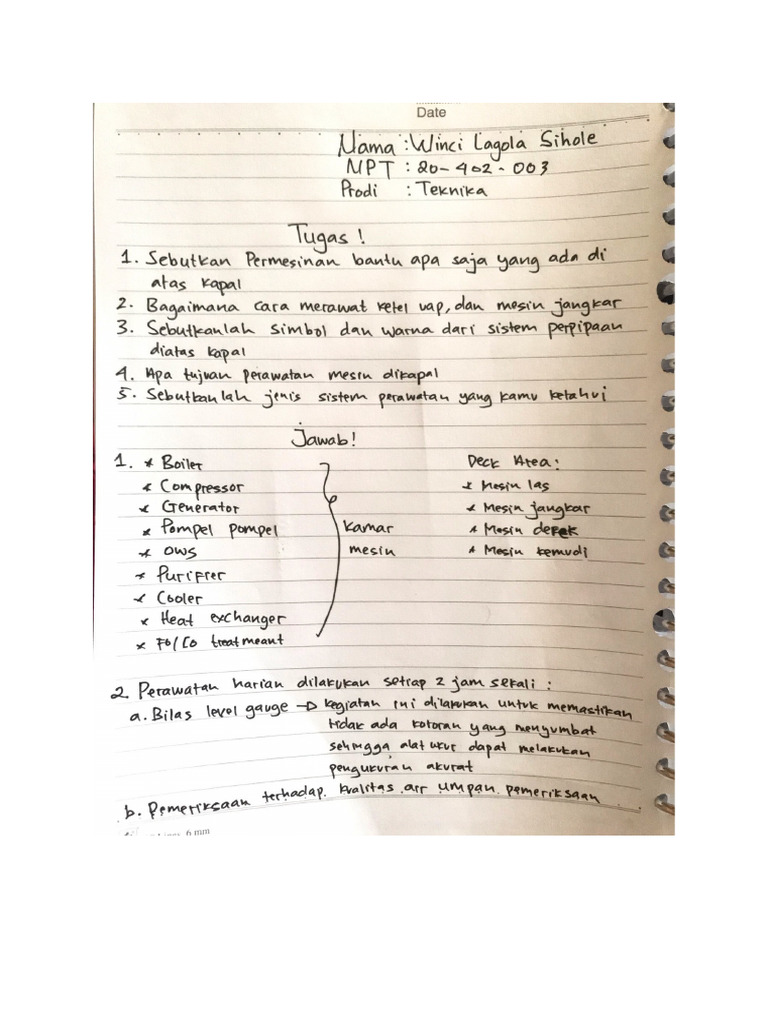 Date
Nama : Winci Lagola Sihole
NPT : 20-402-003
Prodi : Teknika
Tugas !
1. Sebutkan Permesinan bantu apa saja yang ada di
atas kapal
2. Bagaimana cara merawat ketel uap, dan mesin jangkar
3. Sebutkanlah simbol dan warna dari sistem perpipaan
diatas kapal
4. Apa tujuan perawatan mesin dikapal
5. Sebutkanlah jenis sistem perawatan yang kamu ketahui
Jawab!
1. * Boiler
* Compressor
* Generator
* Pompel pompel
* OWS
* Purifrer
* Cooler
* Heat exchanger
* FO/LO treatmeant
kamar
mesin
Deck Area :
* Mesin las
* Mesin jangkar
* Mesin derek
* Mesin kemudi
2. Perawatan harian dilakukan setiap 2 jam sekali :
a. Bilas level gauge → kegiatan ini dilakukan untuk memastikan
tidak ada kotoran yang menyumbat
sehingga alat ukur dapat melakukan
pengukuran akurat
b. Pemeriksaan terhadap kualitas air umpan pemeriksaan
6 mm